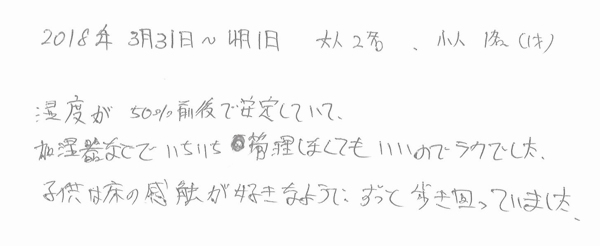 2018年 3月31日～4月1日 大人2名、小人1名(1才)
湿度が50%前後で安定していて、
加湿器などでいちいち管理しなくてもいいのでラクでした。
子供は床の感触が好きなようで、ずっと歩き回っていました。